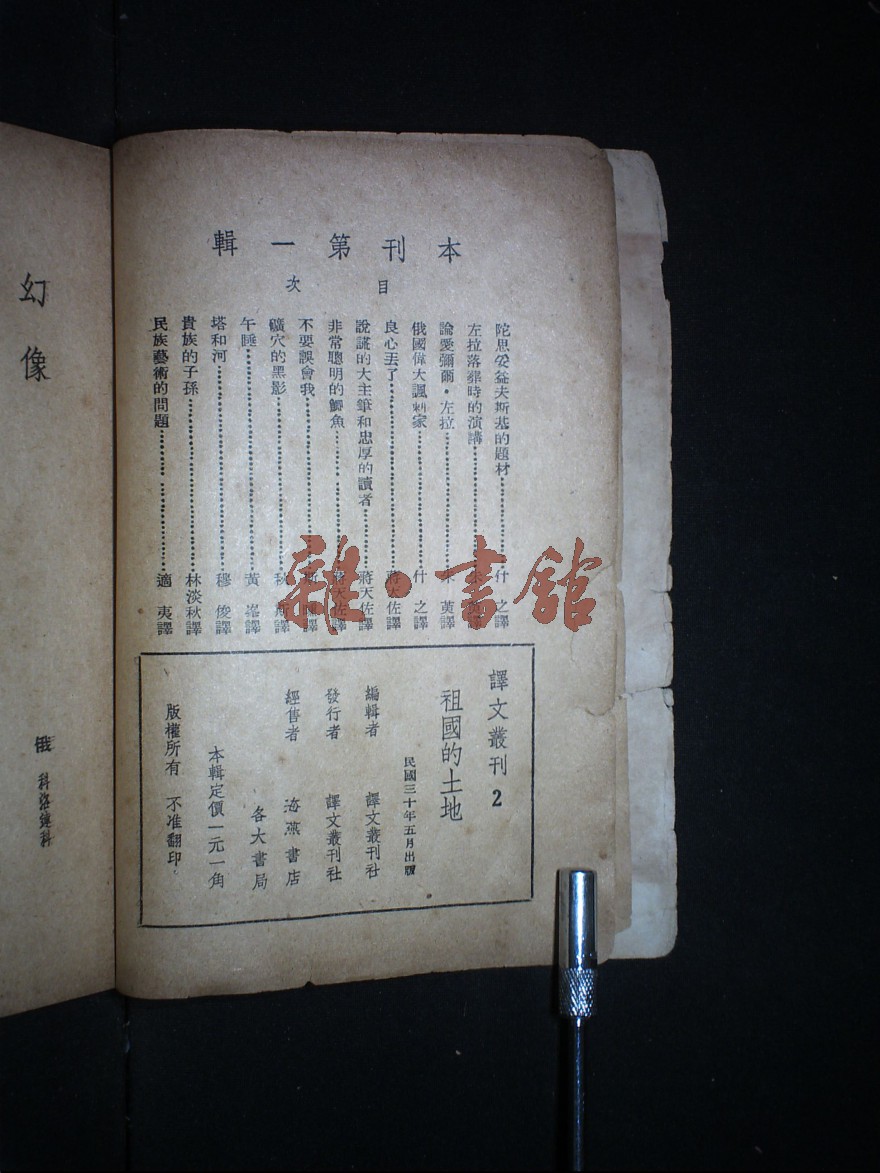 本刊第一輯
目次
陀思妥益夫斯基的題材……什之譯
左拉落葬時的演講……萸譯
論愛彌爾·左拉……萸譯
俄國偉大諷刺家……什之譯
良心丟了……蔣天佐譯
說謊的大主筆和忠厚的讀者……蔣天佐譯
非常聰明的鯽魚……蔣天佐譯
不要誤會我……譯
礦穴的黑影……秋斯譯
午睡……黃峯譯
塔和河……穆俊譯
貴族的子孫……林淡秋譯
民族藝術的問題……適夷譯
譯文叢刊 2
祖國的土地
民國三十年五月出版
編輯者 譯文叢刊社
發行者 譯文叢刊社
經售者 海燕書店
各大書局
本輯定價一元一角
版權所有 不准翻印
幻像
俄 科洛連科
雜·書館